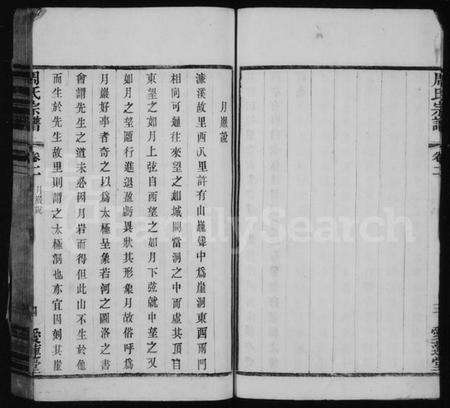 周氏宗譜 卷二 三 愛蓮堂
月巖說
濂溪故里西八里許有山巍聳中為崖洞東西兩門
相向可通往來望之如城闕當洞之中而虛其頂自
東望之如月上弦自西望之如月下弦就中望之又
如月之望隨行進退盈虧異狀其形象月故俗呼為
月巖好事者奇之以為太極呈象若河之圖洛之書
會謂先生之道未必因月岩而得但此山不生於他
而生於先生故里則謂之太極洞也亦宜因刻其崖
周氏宗譜 卷二 月巖說 四 愛蓮堂
FamilySearch